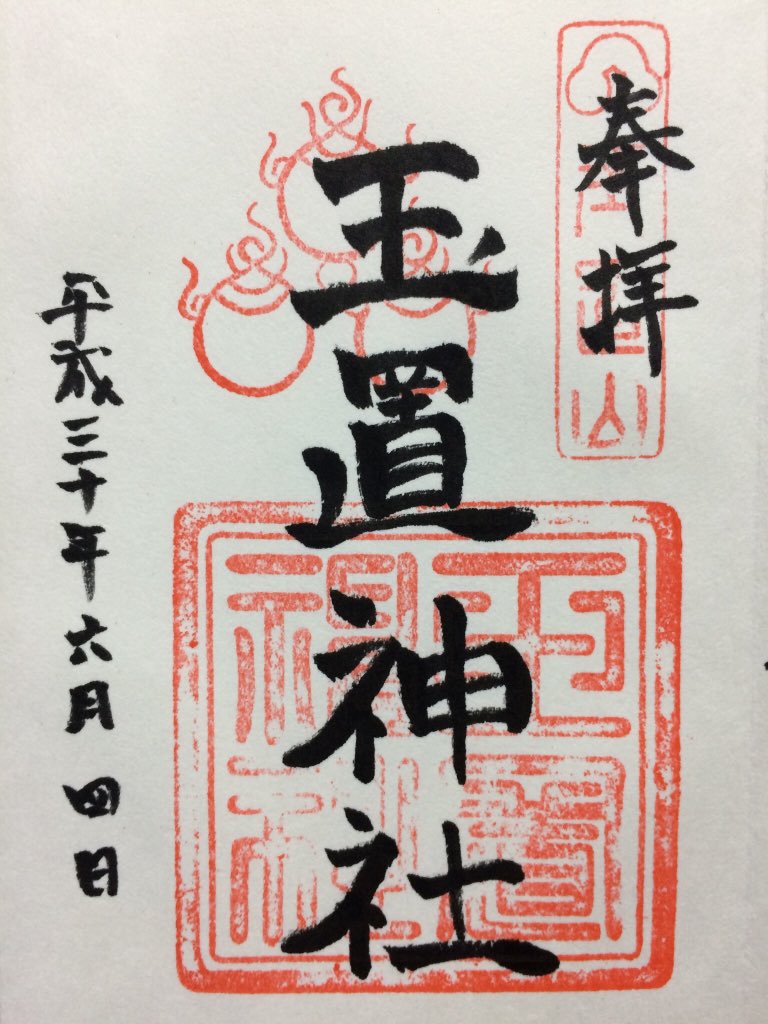 奉拝
玉置山
玉置神社
玉置神社
平成三十年六月四日